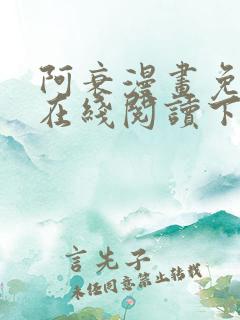 阿衰漫畫免
在綫閱讀下
言先子
未经同意禁止转载